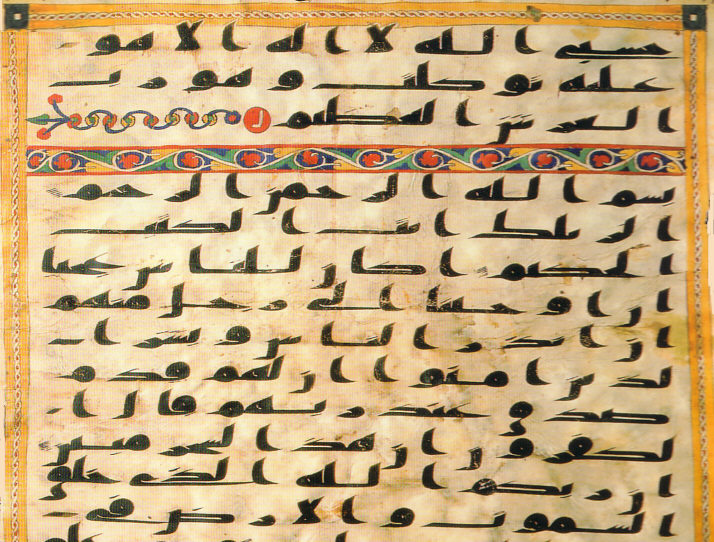 حسبي الله لا اله الا هو
عليه توكلت وهو رب
العرش العظيم
بسم الله الرحمن الرحيم
الر تلك ايت الكتب
الحكيم اكان للناس عجبا
ان اوحينا الى رجل منهم
ان انذر الناس وبشر ا
لذين امنوا ان لهم قدم
صدق عند ربهم قال ا
لكفرون ان هذا لسحر مبين
ان ربكم الله الذي خلق
السموت والارض في